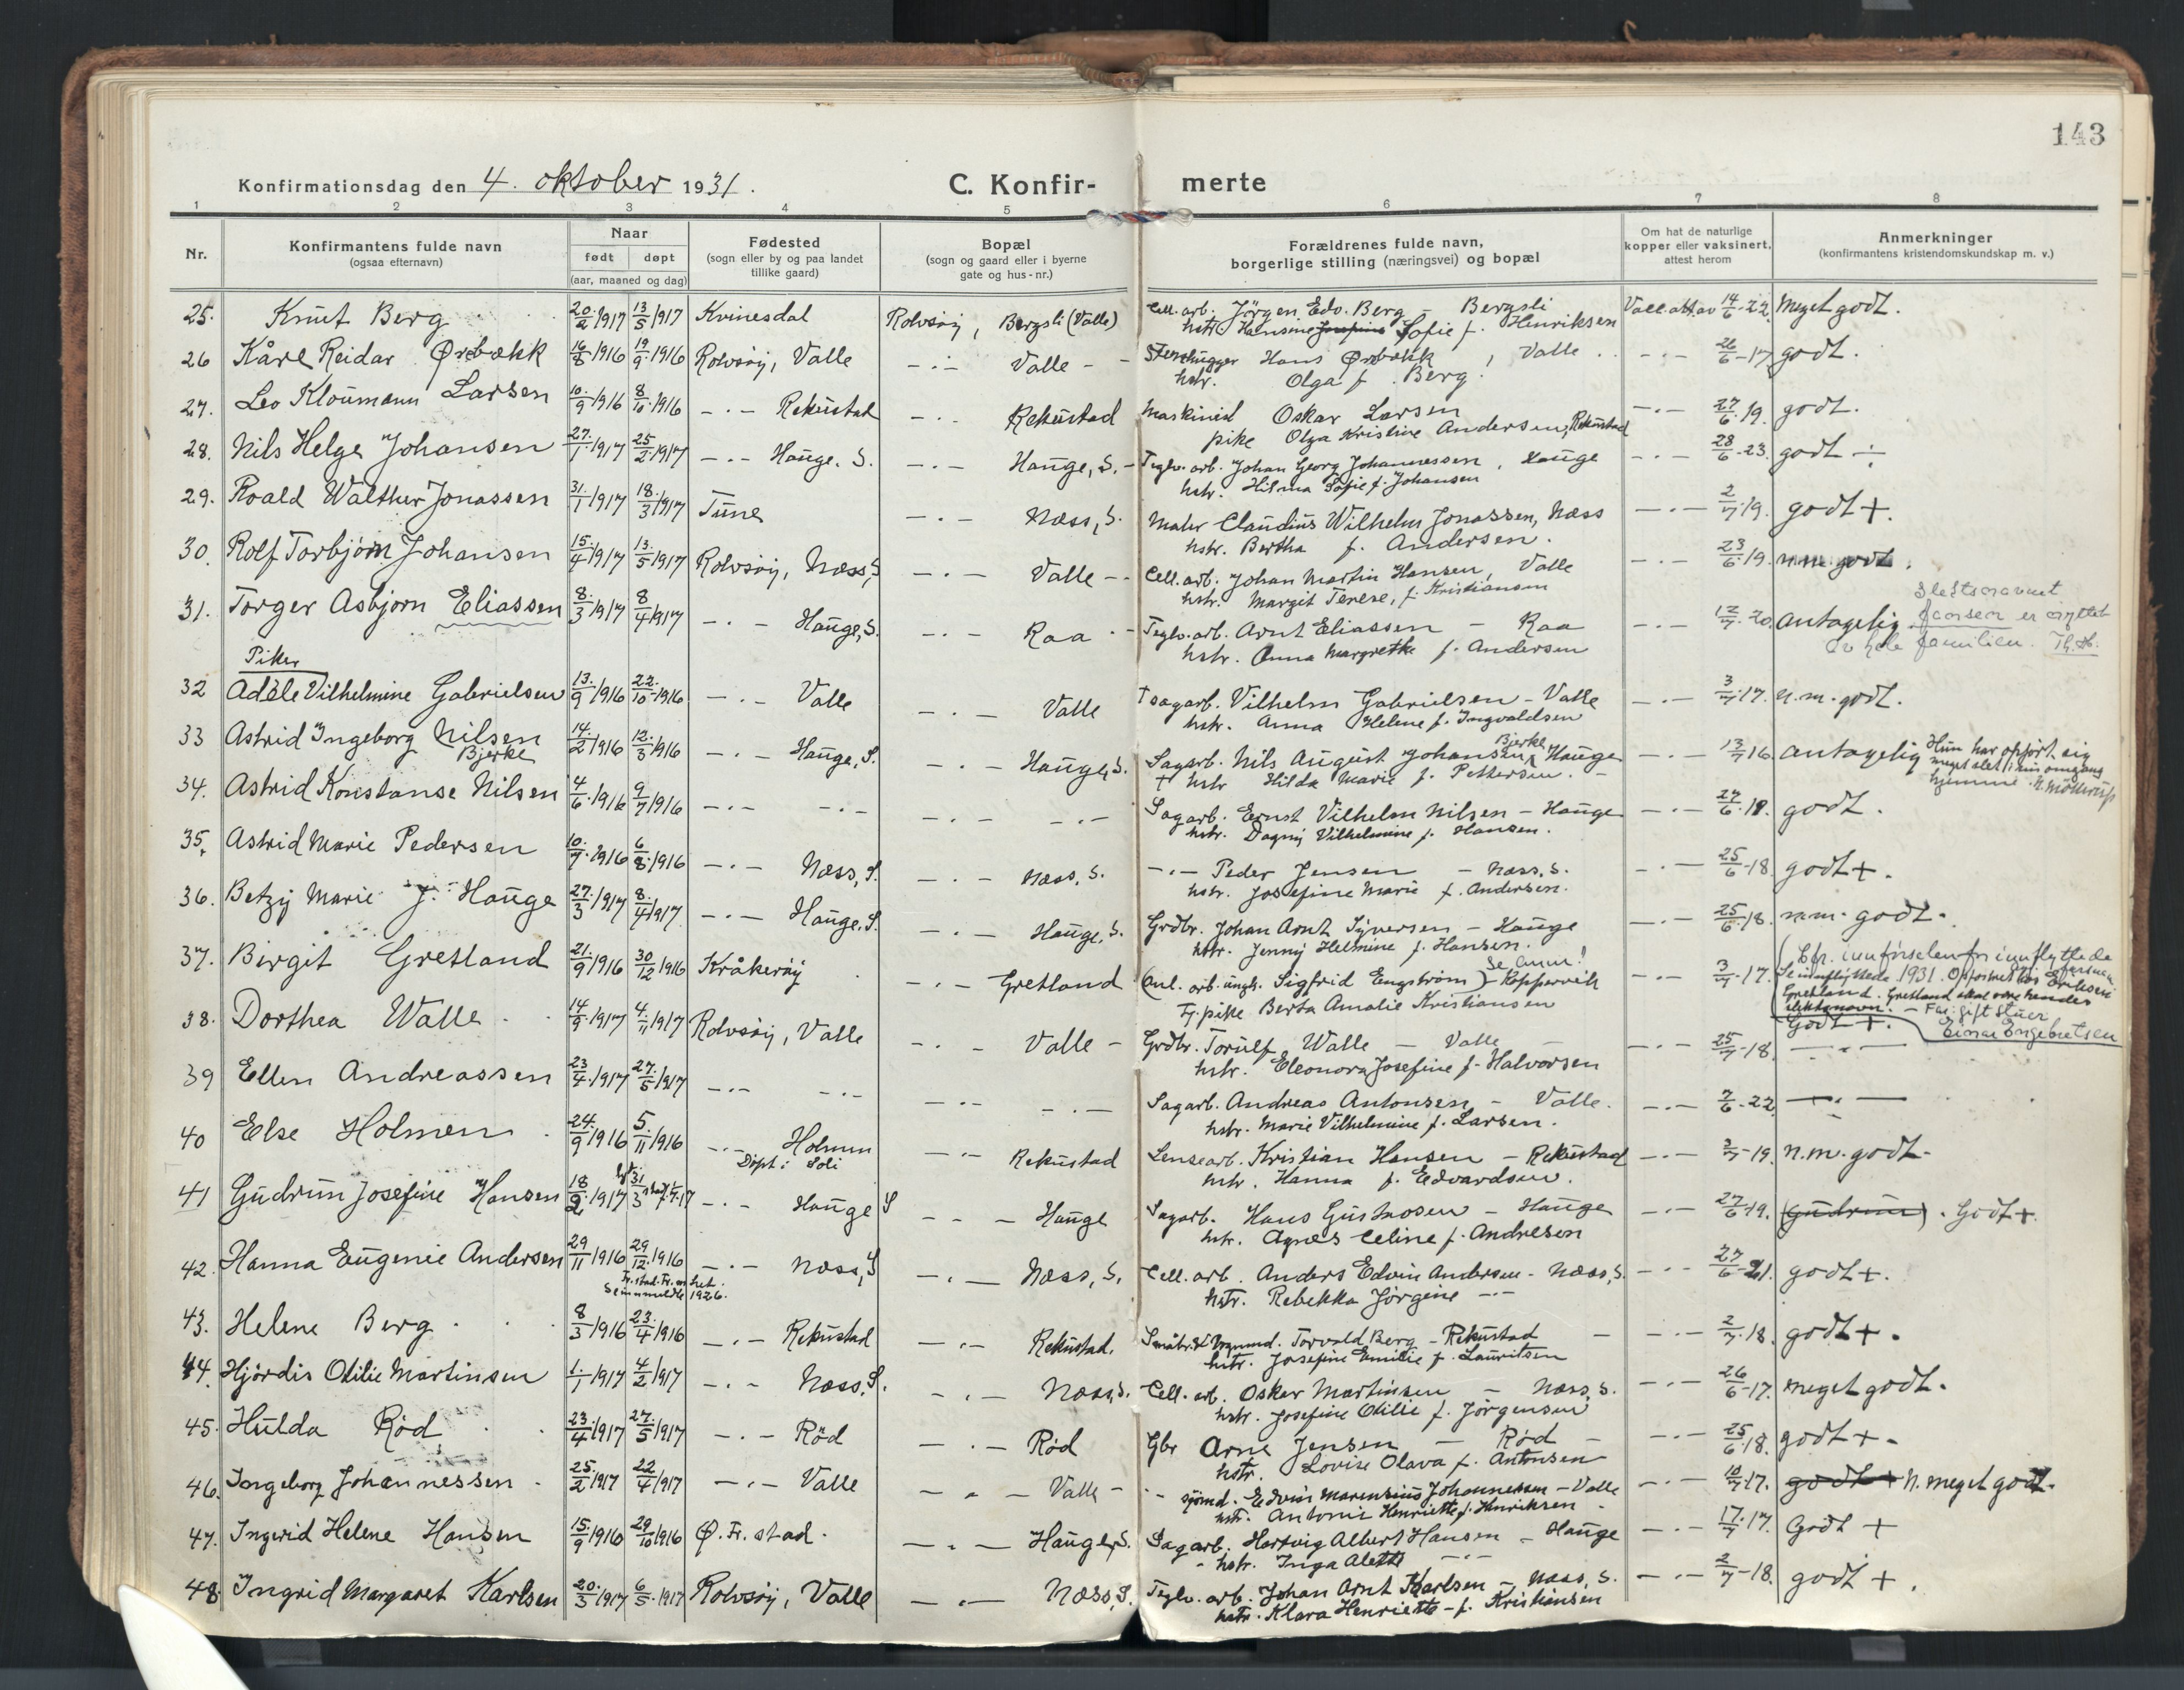 143
Konfirmationsdag den 4. oktober 1931.
C. Konfir-
merte
1 2 3 4 5 6 7 8
Nr.
Konfirmantens fulde navn
(ogsaa efternavn)
Naar
født døpt
(aar, maaned og dag)
Fødested
(sogn eller by og paa landet
tillike gaard)
Bopæl
(sogn og gaard eller i byerne
gate og hus-nr.)
Forældrenes fulde navn,
borgerlige stilling (næringsvei) og bopæl
Om hat de naturlige
kopper eller vaksinert,
attest herom
Anmerkninger
(konfirmantens kristendomskundskap m. v.)
25. Knut Berg 20/2 1917 13/5 1917 Kvinesdal Rolvsøy, Bergsli (Valle) Cell. arb. Jörgen Edv. Berg - Bergsli Vacc.att av 14/6-22. Meget godt.
hstr. Hensine Josefine Sofie f. Henriksen
26 Kåre Reidar Ørebækk 16/8 1916 19/9 1916 Rolvsøy, Valle -"- Valle - Stenhugger Hans Ørebækk, Valle -"- 26/6-17 godt.
hstr. Olga f. Berg.
27. Leo Kloumann Larsen 10/9 1916 8/10 1916 -"- Rekustad -"- Rekustad Maskinist Oskar Larsen -"- 27/6 19. godt.
pike Olga Kristine Andersen, Rekustad
28. Nils Helge Johansen 27/1 1917 25/2 1917 -"- Hauge. S. -"- Hauge, S. - Teglv. arb. Johan Georg Johannessen, Hauge -"- 28/6-23. godt ÷
hstr. Hilma Sofie f. Johansen
29. Roald Walther Jonassen 31/1 1917 18/3 1917 Tune -"- Næss, S. Maler Claudius Wilhelm Jonassen, Næss -"- 2/7 19. godt +.
hstr. Bertha f. Andersen.
30. Rolf Torbjørn Johansen 15/4 1917 13/5 1917 Rolvsøy, Næss, S -"- Valle -- Cell. arb. Johan Martin Hansen, Valle -"- 23/6 19. godt.
hstr. Margit Terese, f. Kristiansen
31. Torger Asbjørn Eliassen 8/3 1917 8/4 1917 -"- Hauge, S. -"- Raa - Teglv. arb. Arnt Eliassen - Raa -"- 12/7 20. antagelig.
hstr. Anna Margrethe f. Andersen
Slektsnavnet
er
hele familien. Th.H.
Piker
32 Adéle Vilhelmine Gabrielsen 13/9 1916 22/10 1916 -"- Valle -"- Valle Sagarb. Vilhelm Gabrielsen - Valle -"- 3/7 17. n.m. godt.
hstr. Anna Helene f. Ingvaldsen
33 Astrid Ingeborg Nilsen 14/2 1916 12/3 1916 -"- Hauge, S. -"- Hauge, S. Sagarb. Nils August Johansen Bjerke, Hauge -"- 13/7 16. antagelig
Bjerke
+ hstr Hilda Marie f. Pettersen. -
Hun har opført sig
meget slet i sin omgang
hjemme.
34. Astrid Konstanse Nilsen 4/6 1916 9/7 1916 -"- -"- -"- -"- Sagarb. Ernst Vilhelm Nilsen - Hauge -"- 27/6 18. godt.
hstr. Dagny Vilhelmine f. Hansen.
35. Astrid Marie Pedersen 10/7 1916 6/8 1916 -"- Næss, S. -"- Næss, S. -"- Peder Jensen - Næss, S. -"- 25/6 18. godt +.
hstr. Josefine Marie f. Andersen.
36. Betzy Marie J. Hauge 27/3 1917 8/4 1917 -"- Hauge. S. -"- Hauge, S. Grdbr. Johan Arnt Syversen - Hauge -"- 25/6 18. n.m. godt.
hstr. Jenny Helmine f. Hansen.
37. Birgit Gretland 21/9 1916 30/12 1916 Kråkerøy - Gretland (Anl. arb. ungk. Sigfrid Engström) - Koppervik -"- 3/7 17.
Se anm!
Fj. pike Berta Amalie Kristiansen
Cfr. innførselen for innflyttede
Se innflyttede 1931. Opfostret hos Eriksen
Gretland. Gretland skal være hendes
slektsnavn. - Far: gift
Einar Engebretsen
Godt +.
38. Dorthea Walle 14/9 1917 4/11 1917 Rolvsøy, Valle -"- Valle - Grdbr. Torulf Walle - Valle -"- 25/7-18. -"-
hstr. Eleonora Josefine f. Halvorsen
39 Ellen Andreassen 23/4 1917 27/5 1917 -"- -"- -"- -"- Sagarb. Andreas Antonsen - Valle. -"- 7/6-22 -"-
hstr. Marie Vilhelmine f. Larsen.
40 Else Holmen 24/9 1916 5/11 1916 -"- Holmen -"- Rekustad Lensearb. Kristian Hansen - Rekustad -"- 3/7-19. n.m. godt -
Döpt i Soli
hstr. Hanna f. Edvardsen.
41 Gudrun Josefine Hansen 18/2 1917 31/3 -"- Hauge S -"- Hauge Sagarb. Hans Gustavsen - Hauge -"- 27/6 19. (Gudrun). Godt +
hstr. Agnes Celine f. Andresen
42. Hanna Eugenie Andersen 29/11 1916 29/12 1916 -"- Næss, S -"- Næss, S. Cell. arb. Anders Edvin Andersen - Næss, S. -"- 27/6-21. godt +.
Fr.stad. Fr.menhet.
Se innmeldte 1926.
hstr. Rebekka Jørgine -"-
43. Helene Berg 8/3 1916 23/4 1916 -"- Rekustad -"- Rekustad. Torvald Berg - Rekustad -"- 2/7 18. godt +.
hstr. Josefine Emilie f. Lauritsen
44. Hjördis Otilie Martinsen 1/1 1917 4/2 1917 -"- Næss, S. -"- Næss, S. Cell. arb. Oskar Martinsen - Næss, S. -"- 26/6-17. meget godt.
hstr. Josefine Otilie f. Jørgensen
45. Hulda Rød 23/4 1917 27/5 1917 -"- Rød -"- Rød Gbr Arne Jensen - Rød - -"- 25/6 18. godt + -
hstr. Lovise Olava f. Antonsen
46. Ingeborg Johannessen 25/2 1917 22/4 1917 -"- Valle -"- Valle - sjömd. Edvin Marensius Johannessen - Valle -"- 10/7 17. godt + N. meget godt.
hstr. Antonie Henriette f. Henriksen
47. Ingerid Helene Hansen 15/9 1916 29/10 1916 Ø. Fr.stad. -"- Hauge, S. Sagarb. Hartvig Albert Hansen - Hauge -"- 17/7 17. Godt +
hstr. Inga Alette -"-
48. Ingrid Margaret Karlsen 20/3 1917 6/5 1917 Rolvsøy, Valle -"- Næss, S. Teglv. arb. Johan Arnt Karlsen - Næss, S. -"- 2/7-18. godt +.
hstr. Klara Henriette f. Kristiansen